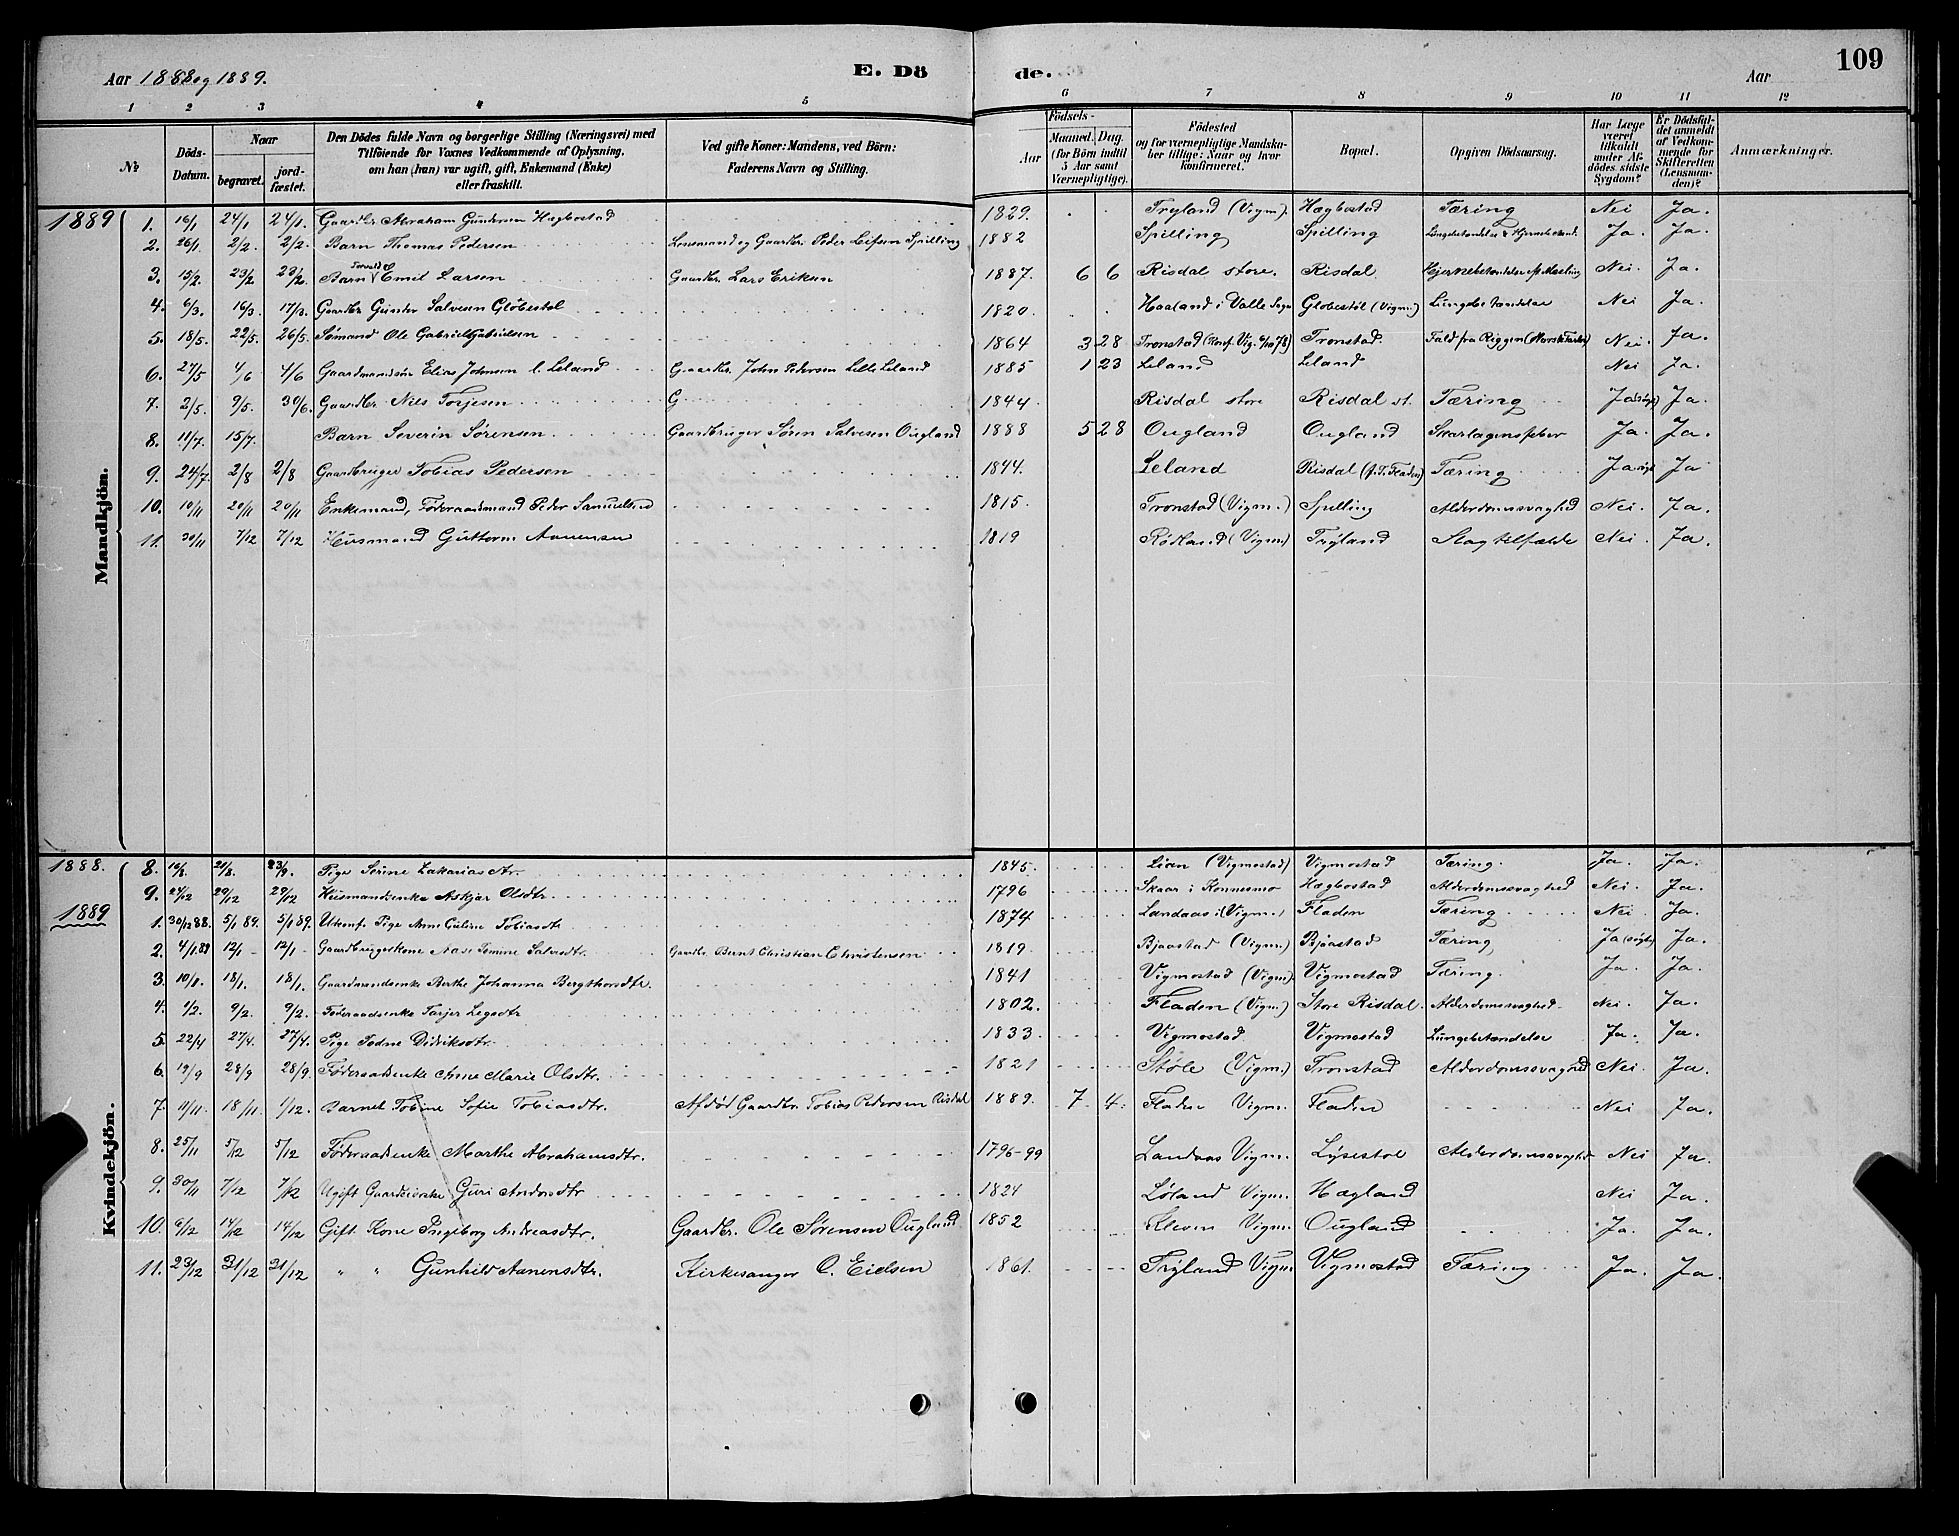 Aar 1888 og 1889. E. Dö de. Aar 109
1 2 3 4 5 6 7 8 9 10 11 12
No Döds-Datum. Naar begravet. jord-fæstet. Den Dödes fulde Navn og borgerlige Stilling (Næringsvei) med Tilföiende for Voxnes Vedkommende af Oplysning, om han (hun) var ugift, gift, Enkemand (Enke) eller fraskilt. Ved gifte Koner: Mandens, ved Börn: Faderens Navn og Stilling. Födsels- Aar Maaned. Dag. (for Börn indtil 5 Aar samt Værnepligtige). Födested og for værnepligtige Mandskaber tillige: Naar og hvor konfirmeret. Bopæl. Opgiven Dödsaarsag. Har Læge været tilkaldt under Afdödes sidste Sygdom? Er Dödsfaldet anmeldt af Vedkommende for Skifteretten (Lensmanden)? Anmærkninger.
Mandkjön.
1889 1. 16/1 24/1 24/1. Gaardbr. Abraham Gundersen Hægbostad 1829. Tryland (Vigm). Hægbostad Tæring Nei Ja.
2. 26/1. 2/2. 2/2. Barn Thomas Pedersen Lensmand og Gaardbr. Peder Leifsen Spilling 1882 Spilling Spilling Ja. Ja.
3. 15/2. 23/2 23/2. Barn Torvald Emil Larsen Gaardbr. Lars Eriksen 1887. 6 6 Risdal store. Risdal Hjernebetændelse eft. Mæsling Nei. Ja.
4. 6/3. 16/3. 17/3. Gaardbr. Gunder Salvesen Glöbestöl 1820. Haaland i Valle Sogn Globestöl (Vigm.) Lungebetændelse Nei Ja.
5. 18/5. 22/5. 26/5. Sømand Ole Gabriel Gabrielsen 1864 3 28 Tronstad (Konf. Vig. 6/10 78) Tronstad. Fald fra Riggen Nei. Ja.
6. 27/5 4/6 4/6 Gaardmandssøn Elias Johnsen l. Leland Gaardbr. John Pedersen Lille Leland 1885 1 23 Leland Leland Nei Ja.
7. 2/5. 9/5. 30/6. Gaardbr. Nils Torjesen G 1844. Risdal store Risdal st. Tæring Ja (søgt) Ja.
8. 11/7. 15/7. Barn Severin Sörensen Gaardbruger Sören Salvesen Ougland 1888 5 28 Ougland Ougland Skarlagensfeber Ja. Ja.
9. 24/7. 2/8 2/8 Gaardbruger Tobias Pedersen 1844. Leland Risdal Tæring Ja søgt Ja
10. 10/11 20/11 20/11 Enkemand, Föderaadsmand Peder Samuelsen 1815. Tronstad (Vigm.) Spilling Alderdomssvaghed Nei. Ja.
11. 30/11 7/12 7/12 Husmand Guttorm Aanensen 1819 Rödland (Vigm.) Tryland Slagtilfælde Nei. Ja.
Kvindekjön.
1888. 8. 16/8. 21/8. 23/9. Pige Serine Zakariasdtr. 1845. Lian (Vigmostad) Vigmostad Tæring. Ja. Ja.
9. 24/12 29/12 29/12 Husmandsenke Askjær Olsdtr 1796 Skaar i Konnesmo Hægbostad Alderdomssvaghed Nei. Ja.
1889 1. 30/12 88. 5/1 89. 5/1 89. Ukonf. Pige Anne Guline Tobiasdtr 1874. Landaas i (Vigm.) Fladen Tæring Nei. Ja.
2. 4/1.89 12/1 - 12/1 - Gaardbrugerkone Aase Tomine Salvesdtr. Gaardbr. Bernt Christian Christensen 1819. Bjaastad (Vigm.) Bjaastad Tæring, Ja (søgt) Ja.
3. 10/1. 18/1. 18/1. Gaardmandsenke Berthe Johanna Bergthorsdtr. 1841 Vigmostad (Vigm). Vigmostad Tæring. Ja. Ja.
4. 1/2. 9/2. 9/2. Føderaadsenke Torjer Legsdtr 1802. Fladen (Vigm.) Store Risdal. Alderdomssvaghed. Nei. Ja.
5. 22/4 27/4. 27/4. Pige Todne Didriksdtr. 1833. Vigmostad. Vigmostad Lungebetændelse Ja. Ja.
6. 19/9 28/9 28/9. Føderaadsenke Anne Marie Olsdtr. 1821 Støle (Vigm.) Tronstad Alderdomssvaghed Nei. Ja.
7. 11/11. 18/11. 1/12. Barnet Tobine Sofie Tobiasdtr. Afdød Gaardbr. Tobias Pedersen Risdal 1889. 7. 4. Fladen Vigm. Fladen Nei Ja.
8. 25/11 5/12 5/12 Føderaadsenke Marthe Abrahamsdtr. 1796-99 Landaas Vigm. Lysestøl Alderdomssvaghed Nei Ja.
9. 30/11 7/12 7/12 Ugift Guri Andersdtr 1824 Løland Vigm. Høgland Nei Ja.
10. 6/12 14/12 14/12 Gift Kone Ingeborg Andreasdtr. Gaardbr. Ole Sørensen Ougland 1852 Kleven Vigm. Ougland Ja. Ja.
11. 23/12 31/12 31/12 " " Gunhild Aanensdtr. Kirkesanger O. Eielsen 1861. Tryland Vigm. Vigmostad Tæring Ja. Ja.